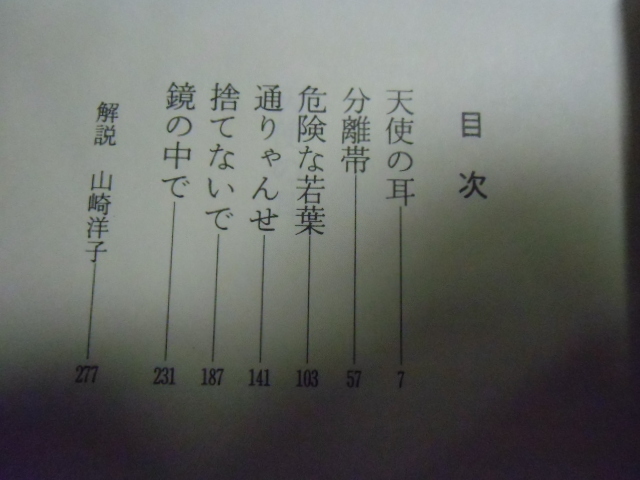 目次
天使の耳 7
分離帯 57
危険な若葉 103
通りゃんせ 141
捨てないで 187
鏡の中で 231
解説 山崎洋子 277